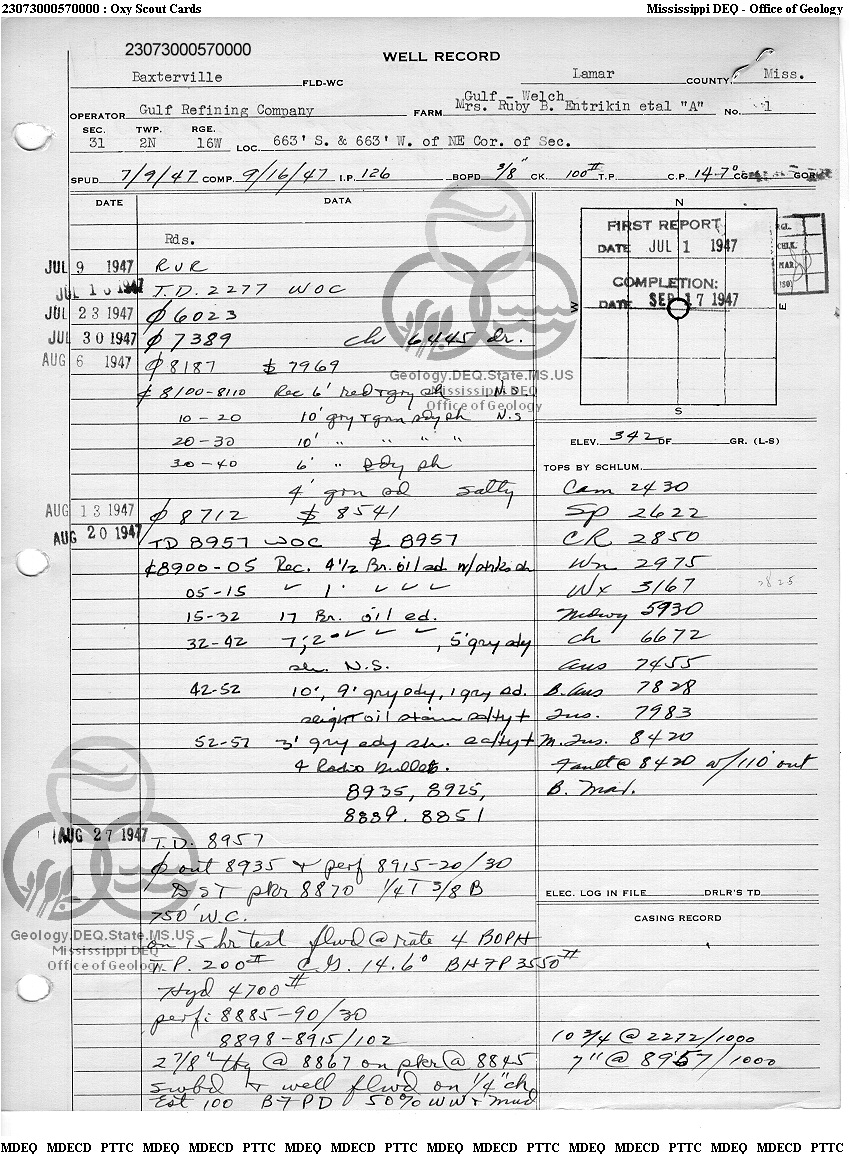 23073000570000 : Oxy Scout Cards Mississippi DEQ - Office of Geology
23073000570000
WELL RECORD
Baxterville FLD-WC Lamar COUNTY, Miss.
Gulf - Welch
OPERATOR Gulf Refining Company FARM Mrs. Ruby B. Entrikin etal "A" No. 1
SEC. TWP. RGE.
31 2N 16W LOC. 663' S. & 663' W. of NE Cor. of Sec.
SPUD 7/9/47 COMP. 9/16/47 I.P. 126 BOPD 3/8" CK. 100# T.P. C.P. 14.7° CG GOR
DATE DATA
Rds.
JUL 9 1947 RUR
1947 T.D. 2277 WOC
JUL 23 1947 ₵ 6023
JUL 30 1947 ₵ 7389 ch 6445 dr.
AUG 6 1947 ₵ 8187 $ 7969
₵ 8100-8110 Rec 6' red & gry sh N.S.
10-20 10' gry & grn sdy sh N.S
20-30 10' " " " "
30-40 6' " sdy sh
4' grn sd salty
AUG 13 1947 ₵ 8712 $ 8541
AUG 20 1947 TD 8957 WOC $ 8957
₵ 8900-05 Rec. 4 1/2 Br. oil sd w/strks sh
05-15 ✓ 1' ✓ ✓ ✓
15-32 17 Br. oil sd.
32-42 7, 2" ✓ ✓ ✓, 5' gry sdy
sh. N.S.
42-52 10', 9' gry sdy, 1 gry sd.
slight oil stain salty +
52-57 3' gry sdy sh. salty +
4 Radio Bullets.
8935, 8925,
8889. 8851
AUG 27 1947 T.D. 8957
₵ out 8935 & perf 8915-20/30
DST pkr 8870 1/4 T 3/8 B
750' W.C.
on 15 hr test flwd @ rate 4 BOPH
T.P. 200# C.G. 14.6° BHFP 3550#
Hyd 4700#
perf: 8885-90/30
8898-8915/102
2 7/8" tbg @ 8867 on pkr @ 8845
swbd & well flwd on 1/4" ch
Est 100 BFPD 50% WW & Mud
N
W
E
S
FIRST REPORT
DATE JUL 1 1947
COMPLETION:
DATE SEP 17 1947
RGL.
CHLK.
MAR.
ISO.
ELEV. 342 DF GR. (L-S)
TOPS BY SCHLUM.
Cam 2430
Sp 2622
CR 2850
Wn 2975
Wx 3167 2825
Mdwy 5930
ch 6672
Aus 7455
B. Aus 7828
Tus. 7983
M. Tus. 8420
Fault @ 8420 w/110' out
B. Mar.
ELEC. LOG IN FILE DRLR'S TD
CASING RECORD
10 3/4 @ 2272/1000
7" @ 8957/1000
Geology.DEQ.State.MS.US
Mississippi DEQ
Office of Geology
Geology.DEQ.State.MS.US
Mississippi DEQ
Office of Geology
MDEQ MDECD PTTC MDEQ MDECD PTTC MDEQ MDECD PTTC MDEQ MDECD PTTC MDEQ MDECD PTTC